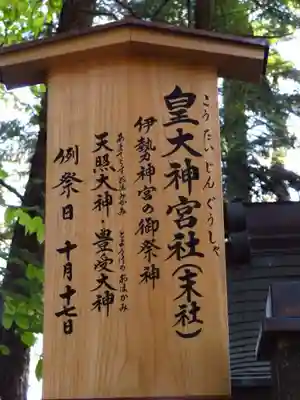 皇大神宮社（末社）
こうたいじんぐうしゃ
伊勢神宮の御祭神
天照大神・豊受大神
あまてらすおおみかみ とようけのおおかみ
例祭日 十月十七日